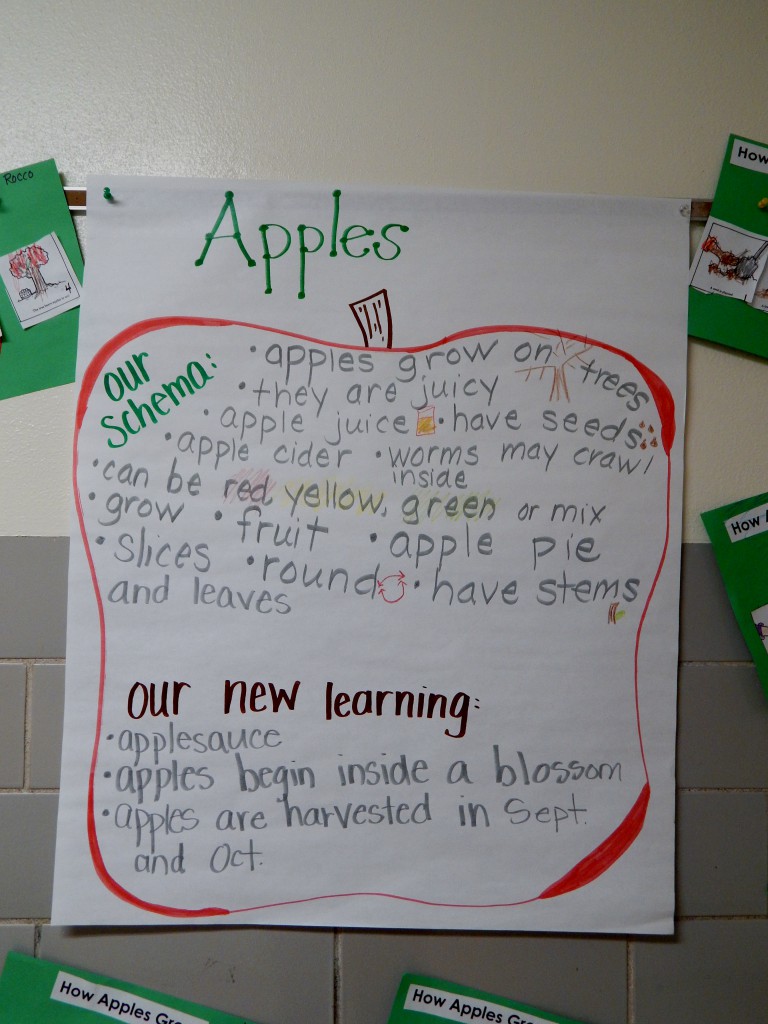 Rocco
4
How
Apples
our
schema:
• apples grow on trees
• they are juicy
• apple juice • have seeds
• apple cider • worms may crawl
inside
• can be red yellow, green or mix
• grow • fruit • apple pie
• slices • round • have stems
and leaves
our new learning:
• applesauce
• apples begin inside a blossom
• apples are harvested in Sept.
and Oct.
How A
How Apples Gro
How Apples Gr